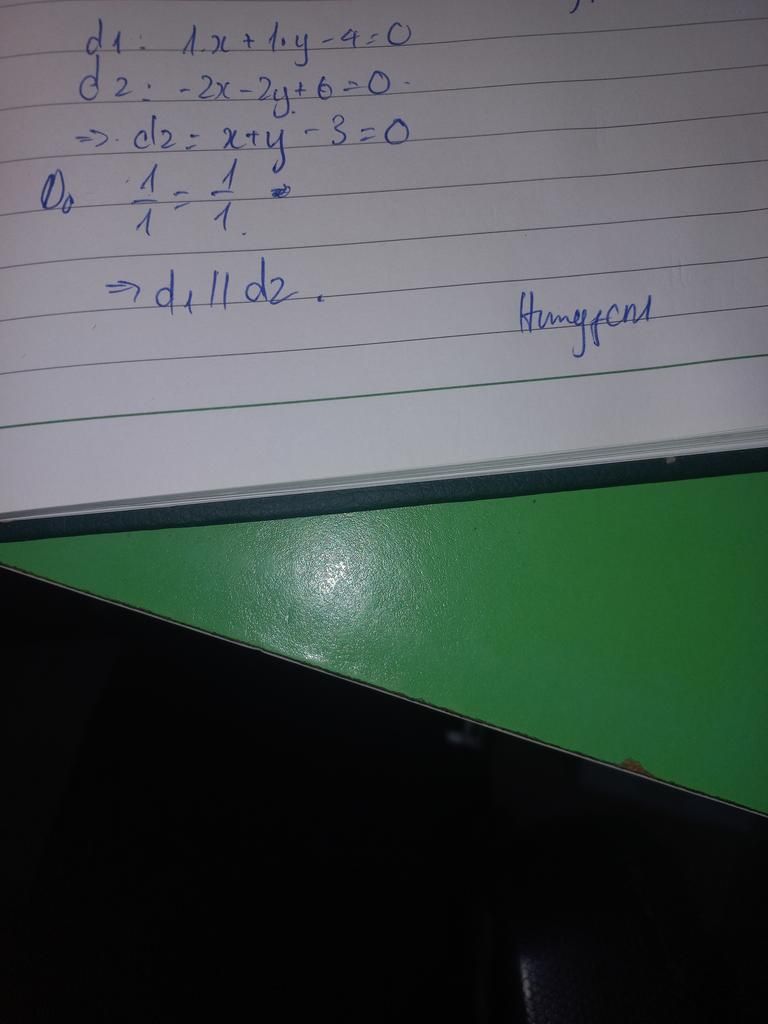 d1: 1.x + 1.y - 4 = 0
d2: -2x - 2y + 6 = 0.
=> d2 = x + y - 3 = 0
Do 1/1 = 1/1
=> d1 // d2.